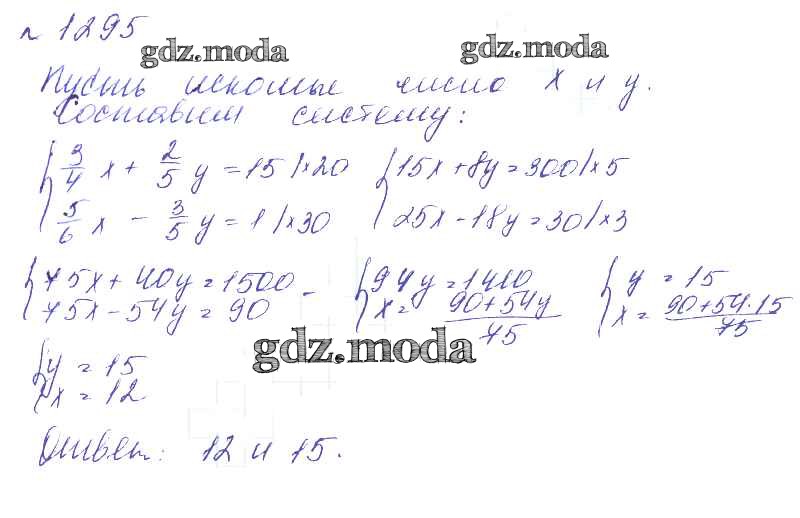 № 1295
gdz.moda gdz.moda
Пусть искомые числа x и y.
Составим систему:
{ 3/4 x + 2/5 y = 15 |×20 { 15x + 8y = 300 |×5
{ 5/6 x - 3/5 y = 1 |×30 { 25x - 18y = 30 |×3
{ 75x + 40y = 1500 - { 94y = 1410 { y = 15
{ 75x - 54y = 90 { x = (90+54y)/75 { x = (90+54·15)/75
gdz.moda
{ y = 15
{ x = 12
Ответ: 12 и 15.